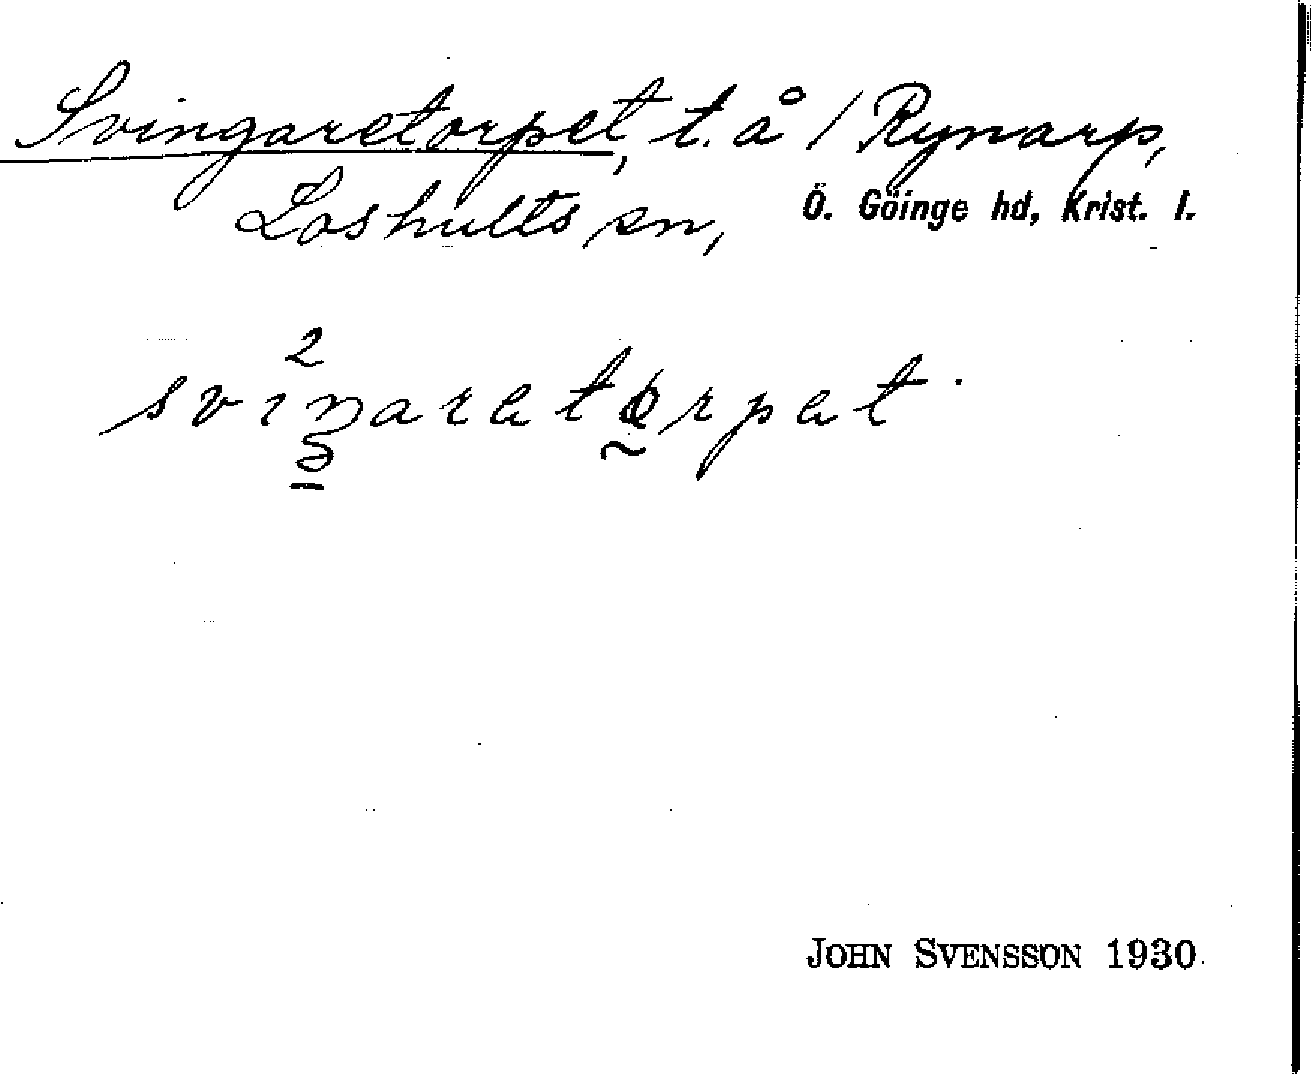 Svingaretorpet, t. å /Rynarp,
Loshults sn, Ö. Göinge hd, Krist. l.
2
JOHN SVENSSON 1930